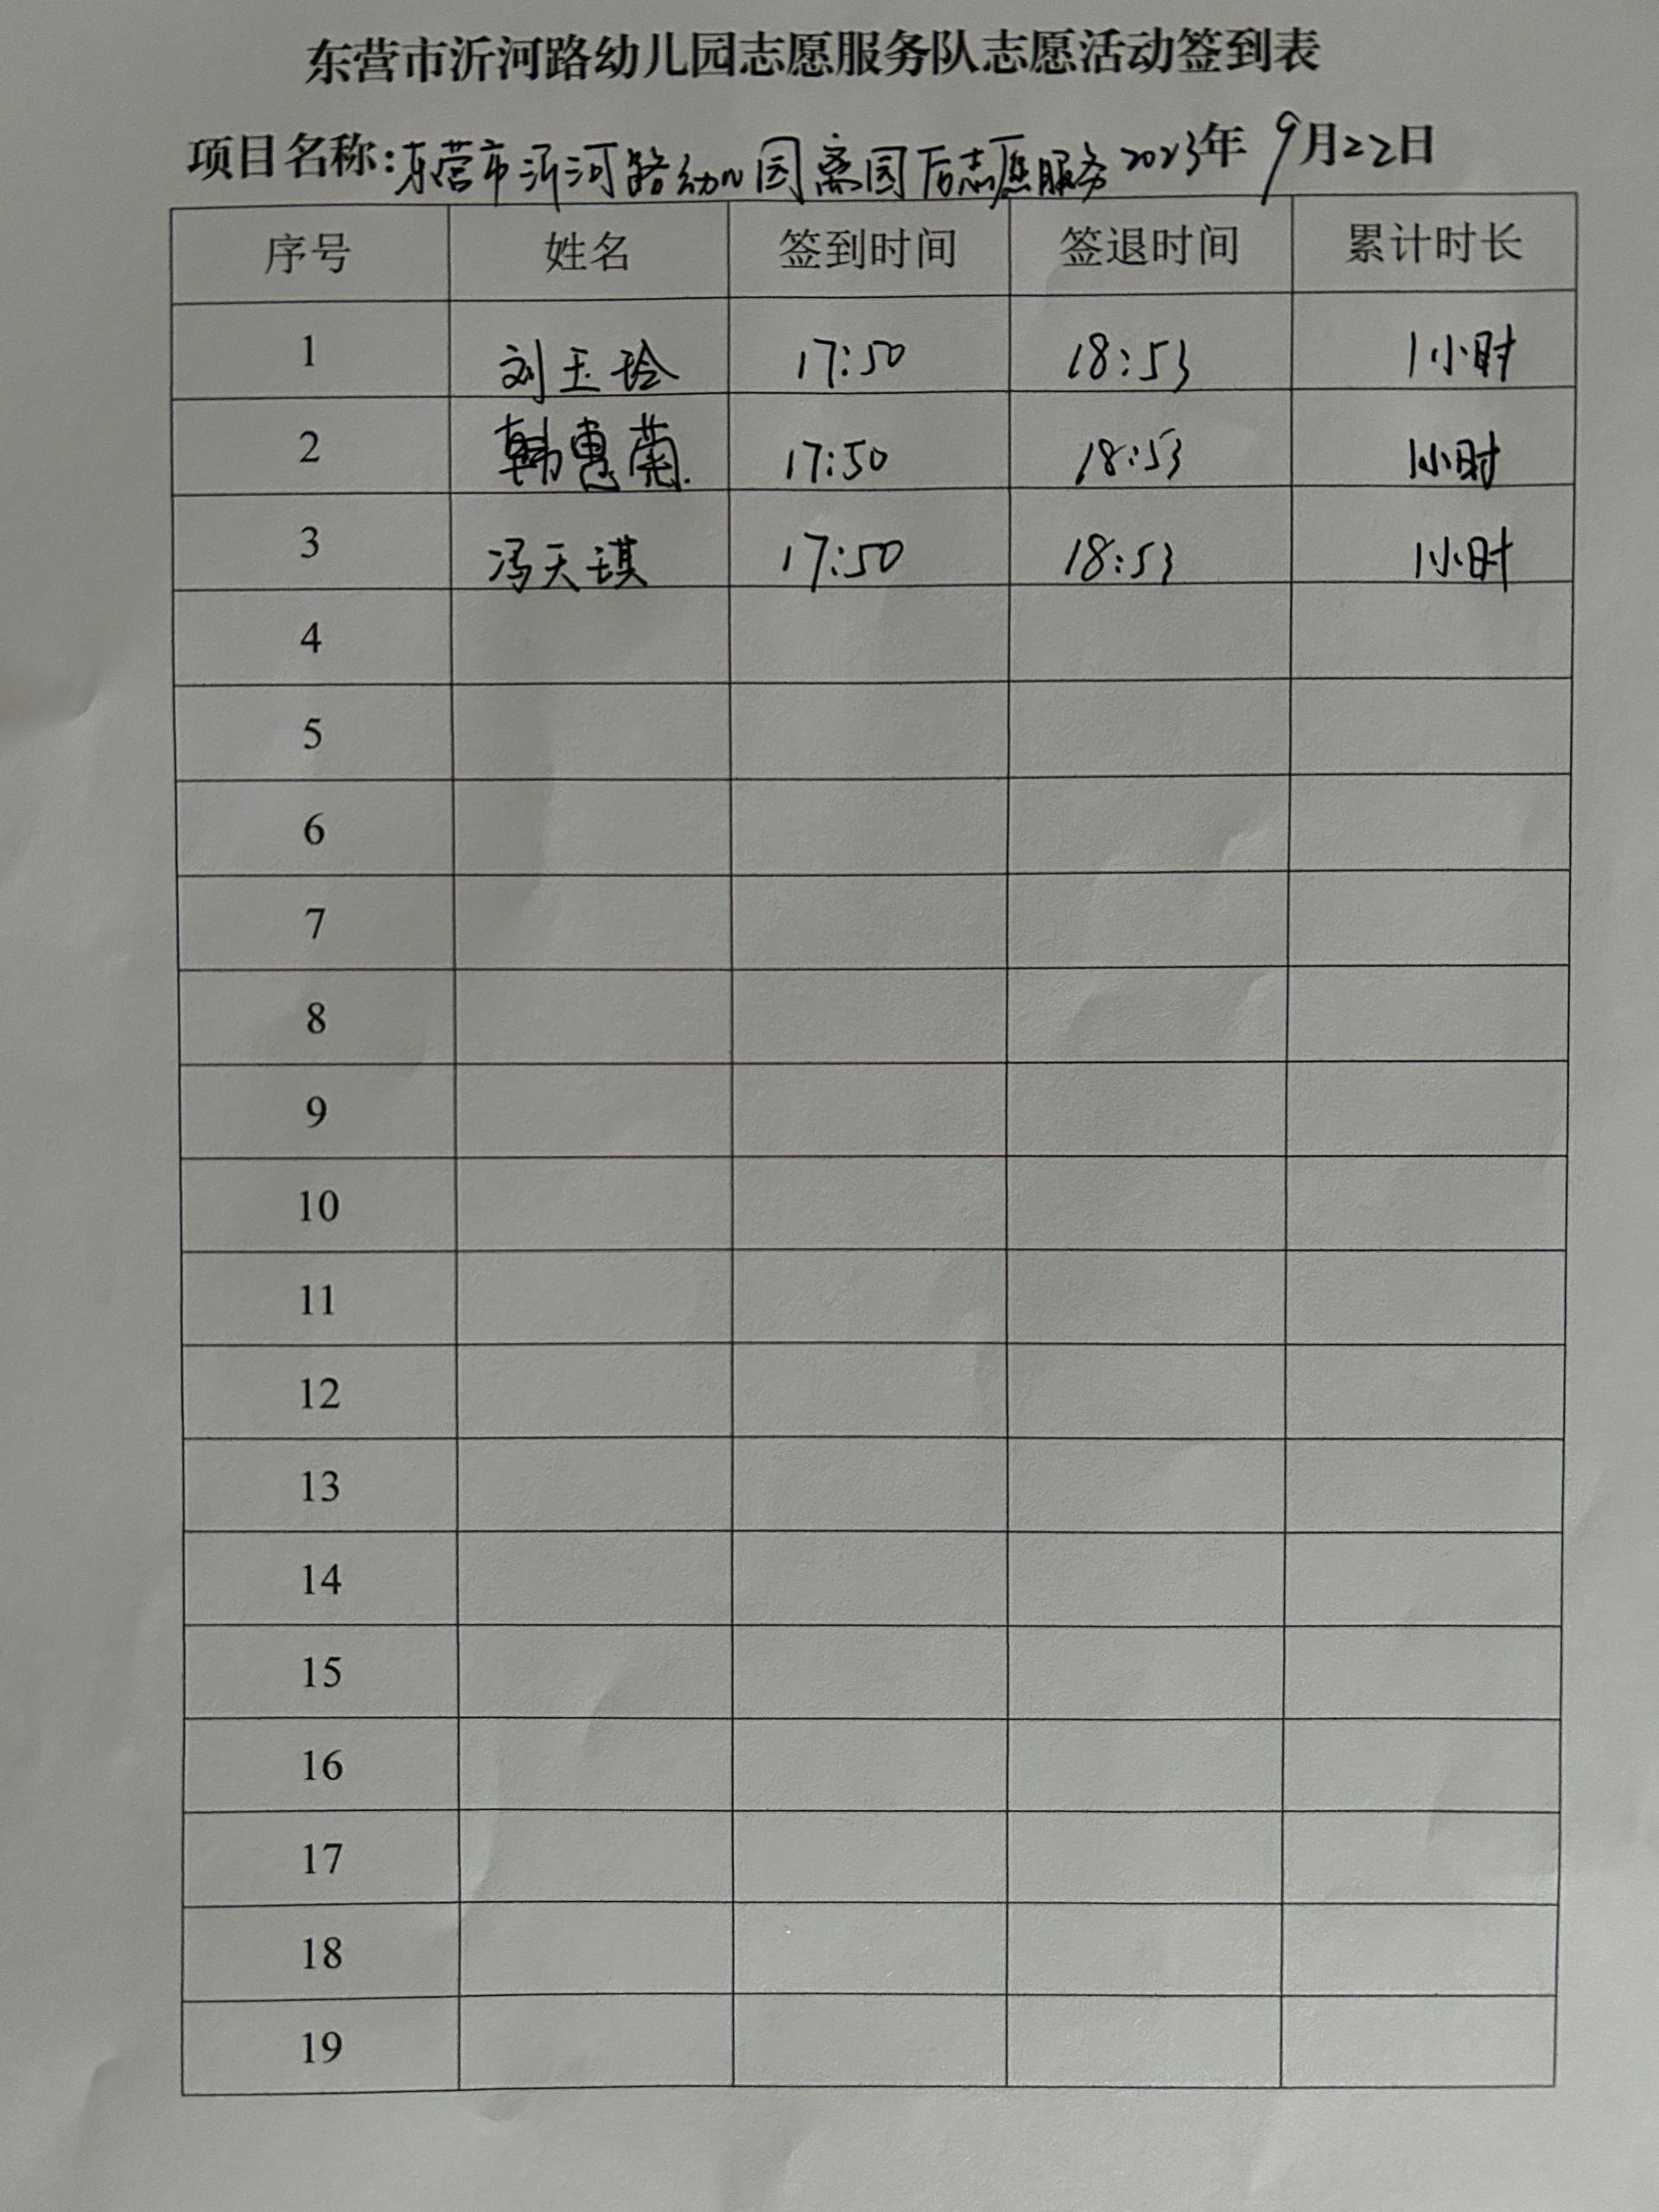 东营市沂河路幼儿园志愿服务队志愿活动签到表
项目名称:东营市沂河路幼儿园离园后志愿服务 2023年 9月22日
序号 姓名 签到时间 签退时间 累计时长
1 刘玉玲 17:50 18:53 1小时
2 韩惠菊 17:50 18:53 1小时
3 冯天琪 17:50 18:53 1小时
4
5
6
7
8
9
10
11
12
13
14
15
16
17
18
19